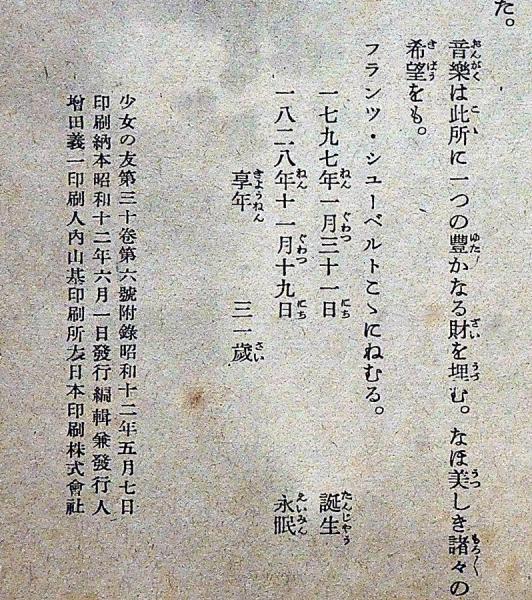 た。
音樂は此所に一つの豊かなる財を埋む。なほ美しき諸々の
希望をも。
フランツ・シューベルトこゝにねむる。
一七九七年一月三十一日 誕生
一八二八年十一月十九日 永眠
享年 三一歲
少女の友第三十卷第六號附錄昭和十二年五月七日
印刷納本昭和十二年六月一日發行編輯兼發行人
增田義一印刷人內山基印刷所大日本印刷株式會社